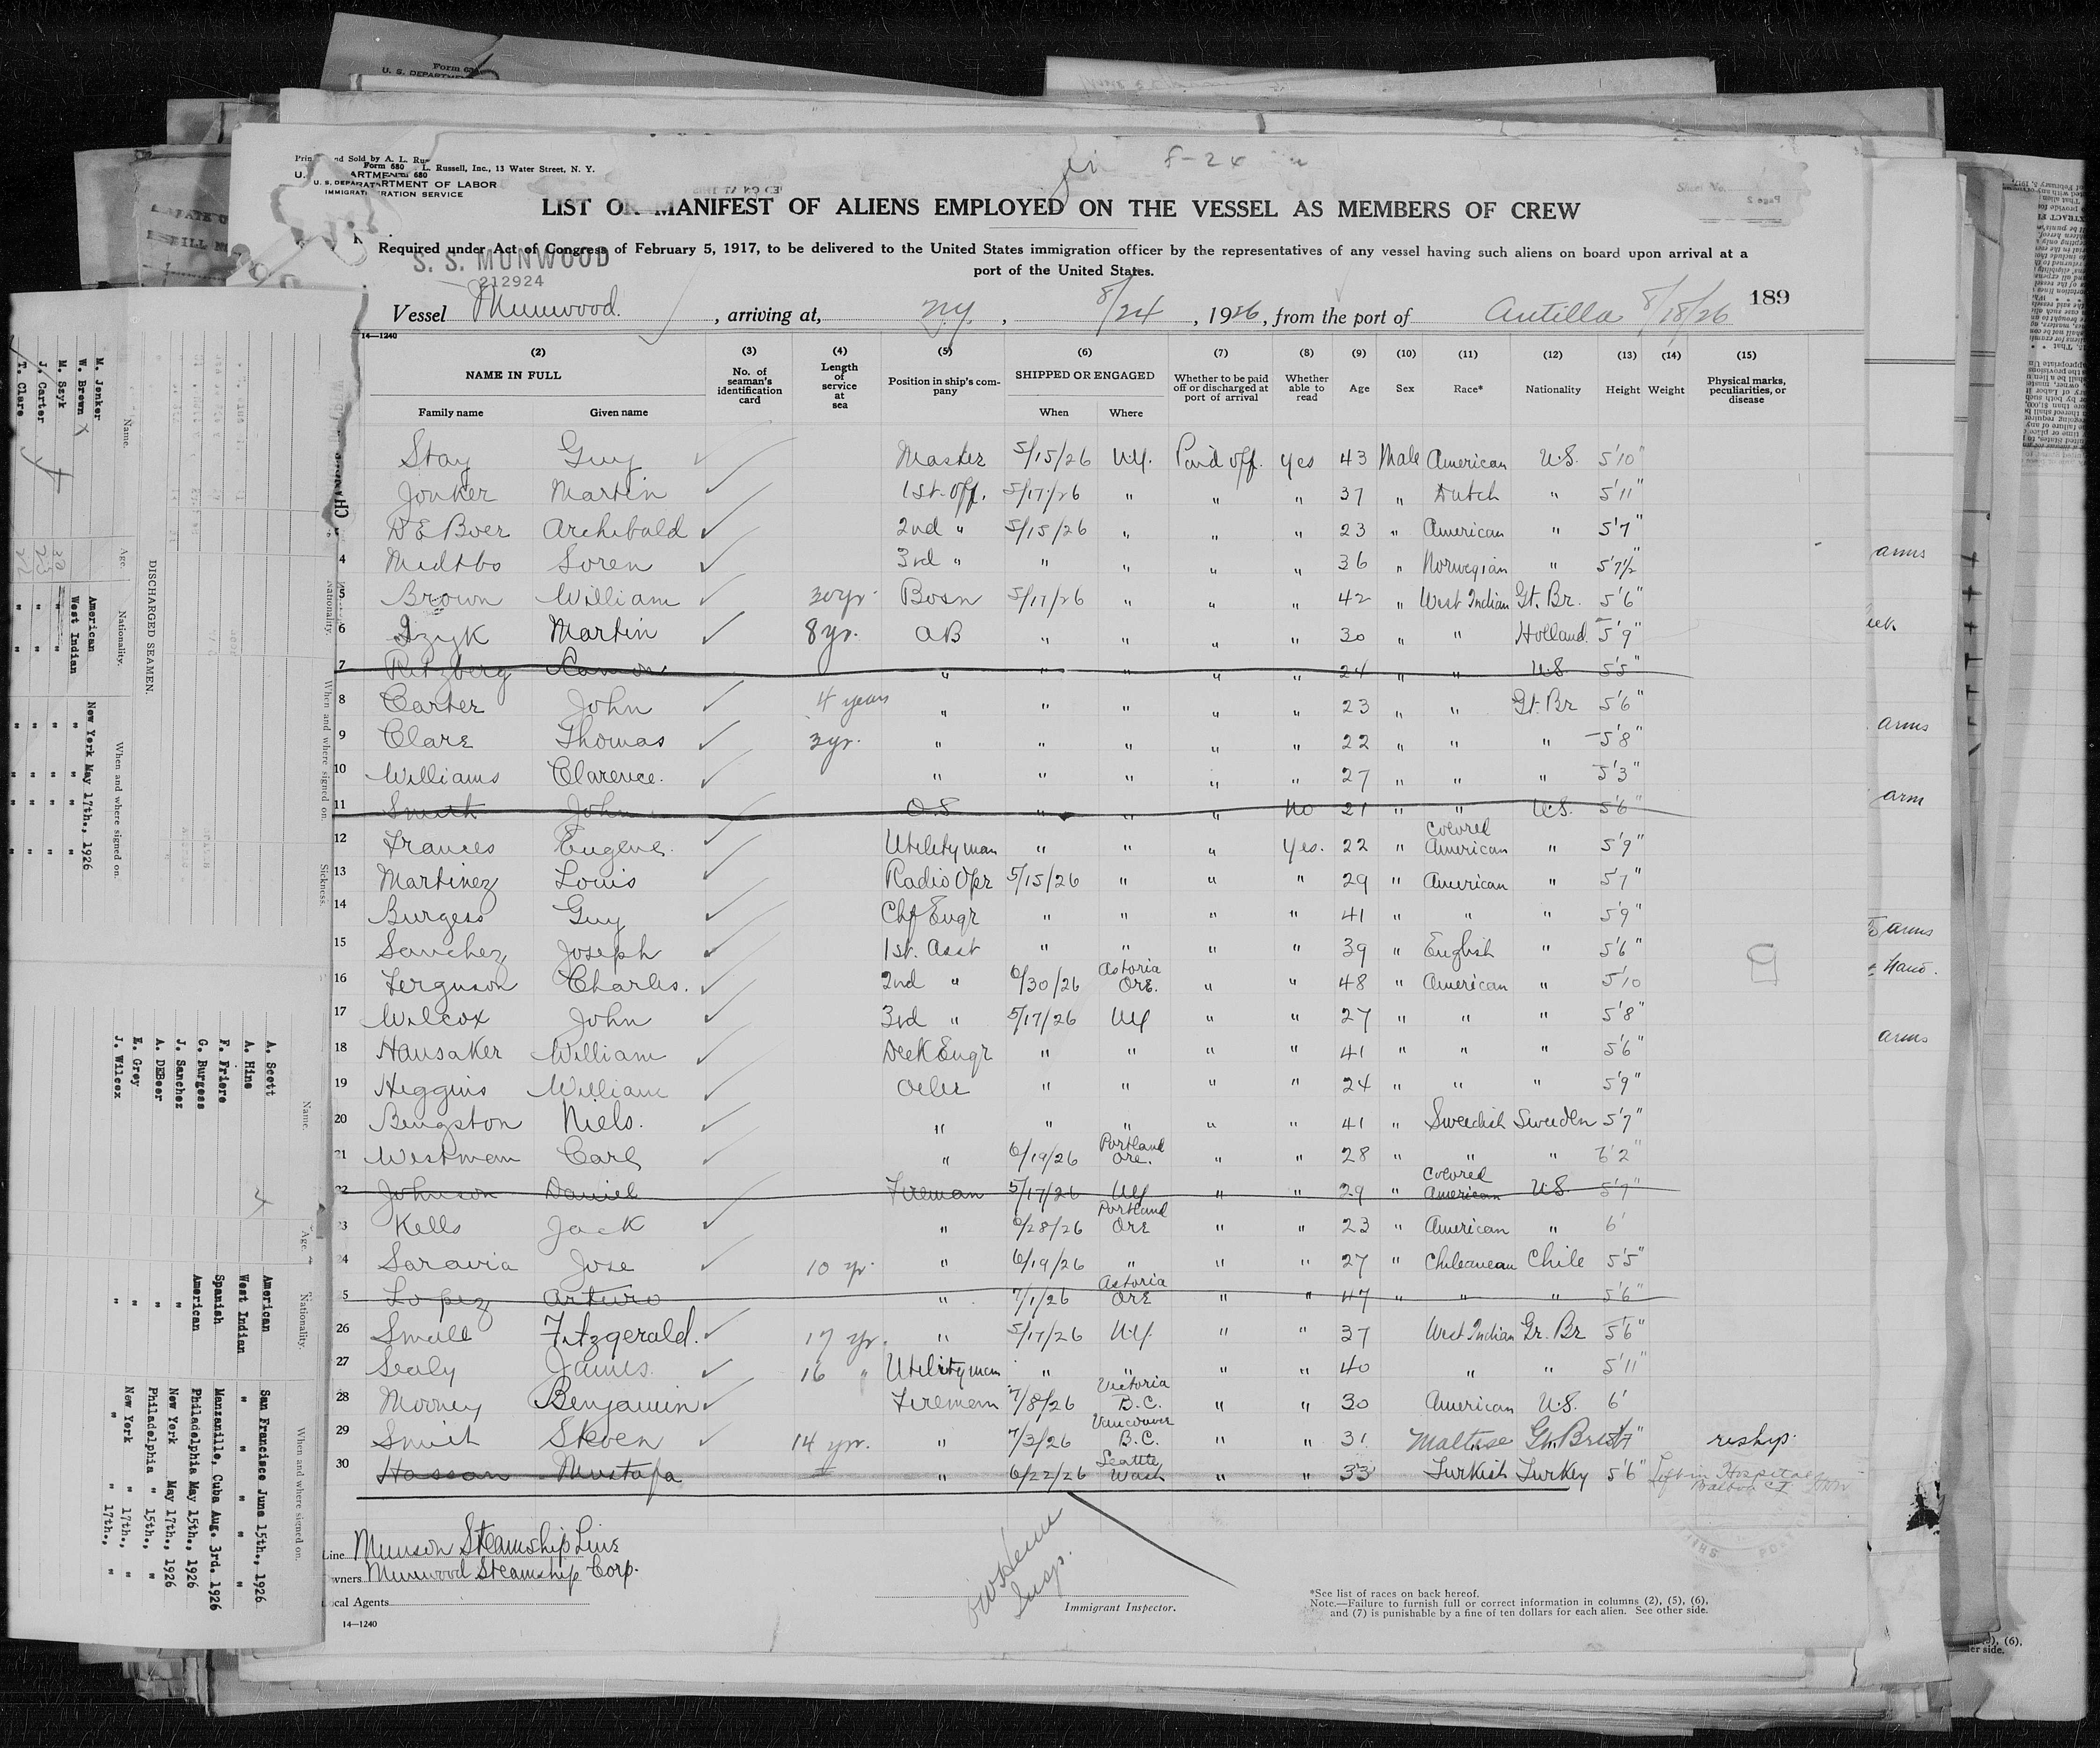 Form 680
U. S. DEPARTMENT
Printed and Sold by A. L. Rus
Form 680 L. Russell, Inc., 13 Water Street, N. Y.
U. S. DEPARTMENT OF LABOR
IMMIGRATION SERVICE
8-24
Sheet No.
LIST OR MANIFEST OF ALIENS EMPLOYED ON THE VESSEL AS MEMBERS OF CREW
Required under Act of Congress of February 5, 1917, to be delivered to the United States immigration officer by the representatives of any vessel having such aliens on board upon arrival at a
port of the United States.
S. S. MUNWOOD
212924
189
Vessel Munwood , arriving at, N.Y. , 8/24 , 1926, from the port of Antilla 8/18/26
14—1240
(2) (3) (4) (5) (6) (7) (8) (9) (10) (11) (12) (13) (14) (15)
NAME IN FULL No. of seaman's identification card Length of service at sea Position in ship's company SHIPPED OR ENGAGED Whether to be paid off or discharged at port of arrival Whether able to read Age Sex Race* Nationality Height Weight Physical marks, peculiarities, or disease
Family name Given name When Where
Stay Guy Master 5/15/26 N.Y. Paid off. yes 43 Male American U.S. 5'10"
Jonker Martin 1st. Off. 5/17/26 " " " 37 " Dutch " 5'11"
DE Boer Archibald 2nd " 5/15/26 " " " 23 " American " 5'7"
4 Midtbo Soren 3rd " " " " " 36 " Norwegian " 5'7½"
5 Brown William 30 yr. Bosn 5/17/26 " " " 42 " West Indian Gt. Br. 5'6"
6 Szyk Martin 8 yr. AB " " " " 30 " " Holland 5'9"
7 Ritzberg Ramon " " " " " 24 " " U.S. 5'5"
8 Carter John 4 years " " " " " 23 " " Gt. Br 5'6"
9 Clare Thomas 3 yr. " " " " " 22 " " " 5'8"
10 Williams Clarence. " " " " " 27 " " " 5'3"
11 Smith John O.S. " " " no 21 " " U.S. 5'6"
12 Frances Eugene. Utility man " " " Yes. 22 " Colored American " 5'9"
13 Martinez Louis Radio Opr 5/15/26 " " " 29 " American " 5'7"
14 Burgess Guy Chf Engr " " " " 41 " " " 5'9"
15 Sanchez Joseph 1st. Asst " " " " 39 " English " 5'6"
16 Ferguson Charles. 2nd " 6/30/26 Astoria ORE. " " 48 " American " 5'10
17 Wilcox John 3rd " 5/17/26 NY " " 27 " " " 5'8"
18 Hausaker William Deck Engr " " " " 41 " " " 5'6"
19 Higgins William Oiler " " " " 24 " " " 5'9"
20 Bengston Niels. " " " " " 41 " Swedish Sweden 5'7"
21 Westman Carl " 6/19/26 Portland Ore. " " 28 " " " 6'2"
22 Johnson Daniel Fireman 5/17/26 NY " " 29 " Colored American U.S. 5'7"
23 Kells Jack " 6/28/26 Portland ORE " " 23 " American " 6'
24 Saravia Jose 10 yr. " 6/19/26 " " " 27 " Chileanean Chile 5'5"
5 Lopez Arturo " 7/1/26 Astoria ORE " " 47 " " " 5'6"
26 Small Fitzgerald. 17 yr. " 5/17/26 N.Y. " " 37 West Indian Gr. Br 5'6"
27 Sealy James. 16 " Utility man " " " " 40 " " 5'11"
28 Mooney Benjamin Fireman 7/8/26 Victoria B.C. " " 30 American U.S. 6'
29 Smith Steven 14 yr. " 7/3/26 Vancouver B.C. " " 31 Maltese Gt. Brit 5'7" reship.
30 Hassan Mustafa " 6/22/26 Seattle Wash " " 33 Turkish Turkey 5'6" Left in Hospital Balboa
Line Munson Steamship Line
Owners Munwood Steamship Corp.
Local Agents
Insp.
Immigrant Inspector.
*See list of races on back hereof.
Note.—Failure to furnish full or correct information in columns (2), (5), (6),
and (7) is punishable by a fine of ten dollars for each alien. See other side.
14—1240
arms
arms
arm
arms
Hand.
arms
DISCHARGED SEAMEN.
Name. Age. Nationality. When and where signed on.
M. Jonker American New York May 17th., 1926
W. Brown West Indian " " " "
M. Szyk 30 " " " " "
J. Carter 23 " " " " "
T. Clare 22 " " " " "
Nationality. When and where signed on. Sickness.
Name. Age. Nationality. When and where signed on.
A. Scott American San Francisco June 15th., 1926
A. Hine West Indian " " " "
F. Friere Spanish Manzanillo, Cuba Aug. 3rd. 1926
G. Burgess American Philadelphia May 15th., 1926
J. Sanchez " New York May 17th., 1926
A. DEBoer " Philadelphia " 15th., "
E. Grey " New York " 17th., "
J. Wilcox " " " 17th., "